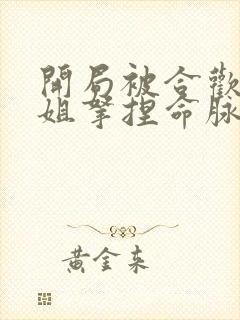 開局被合歡
姐拏捏命脉
黃金來